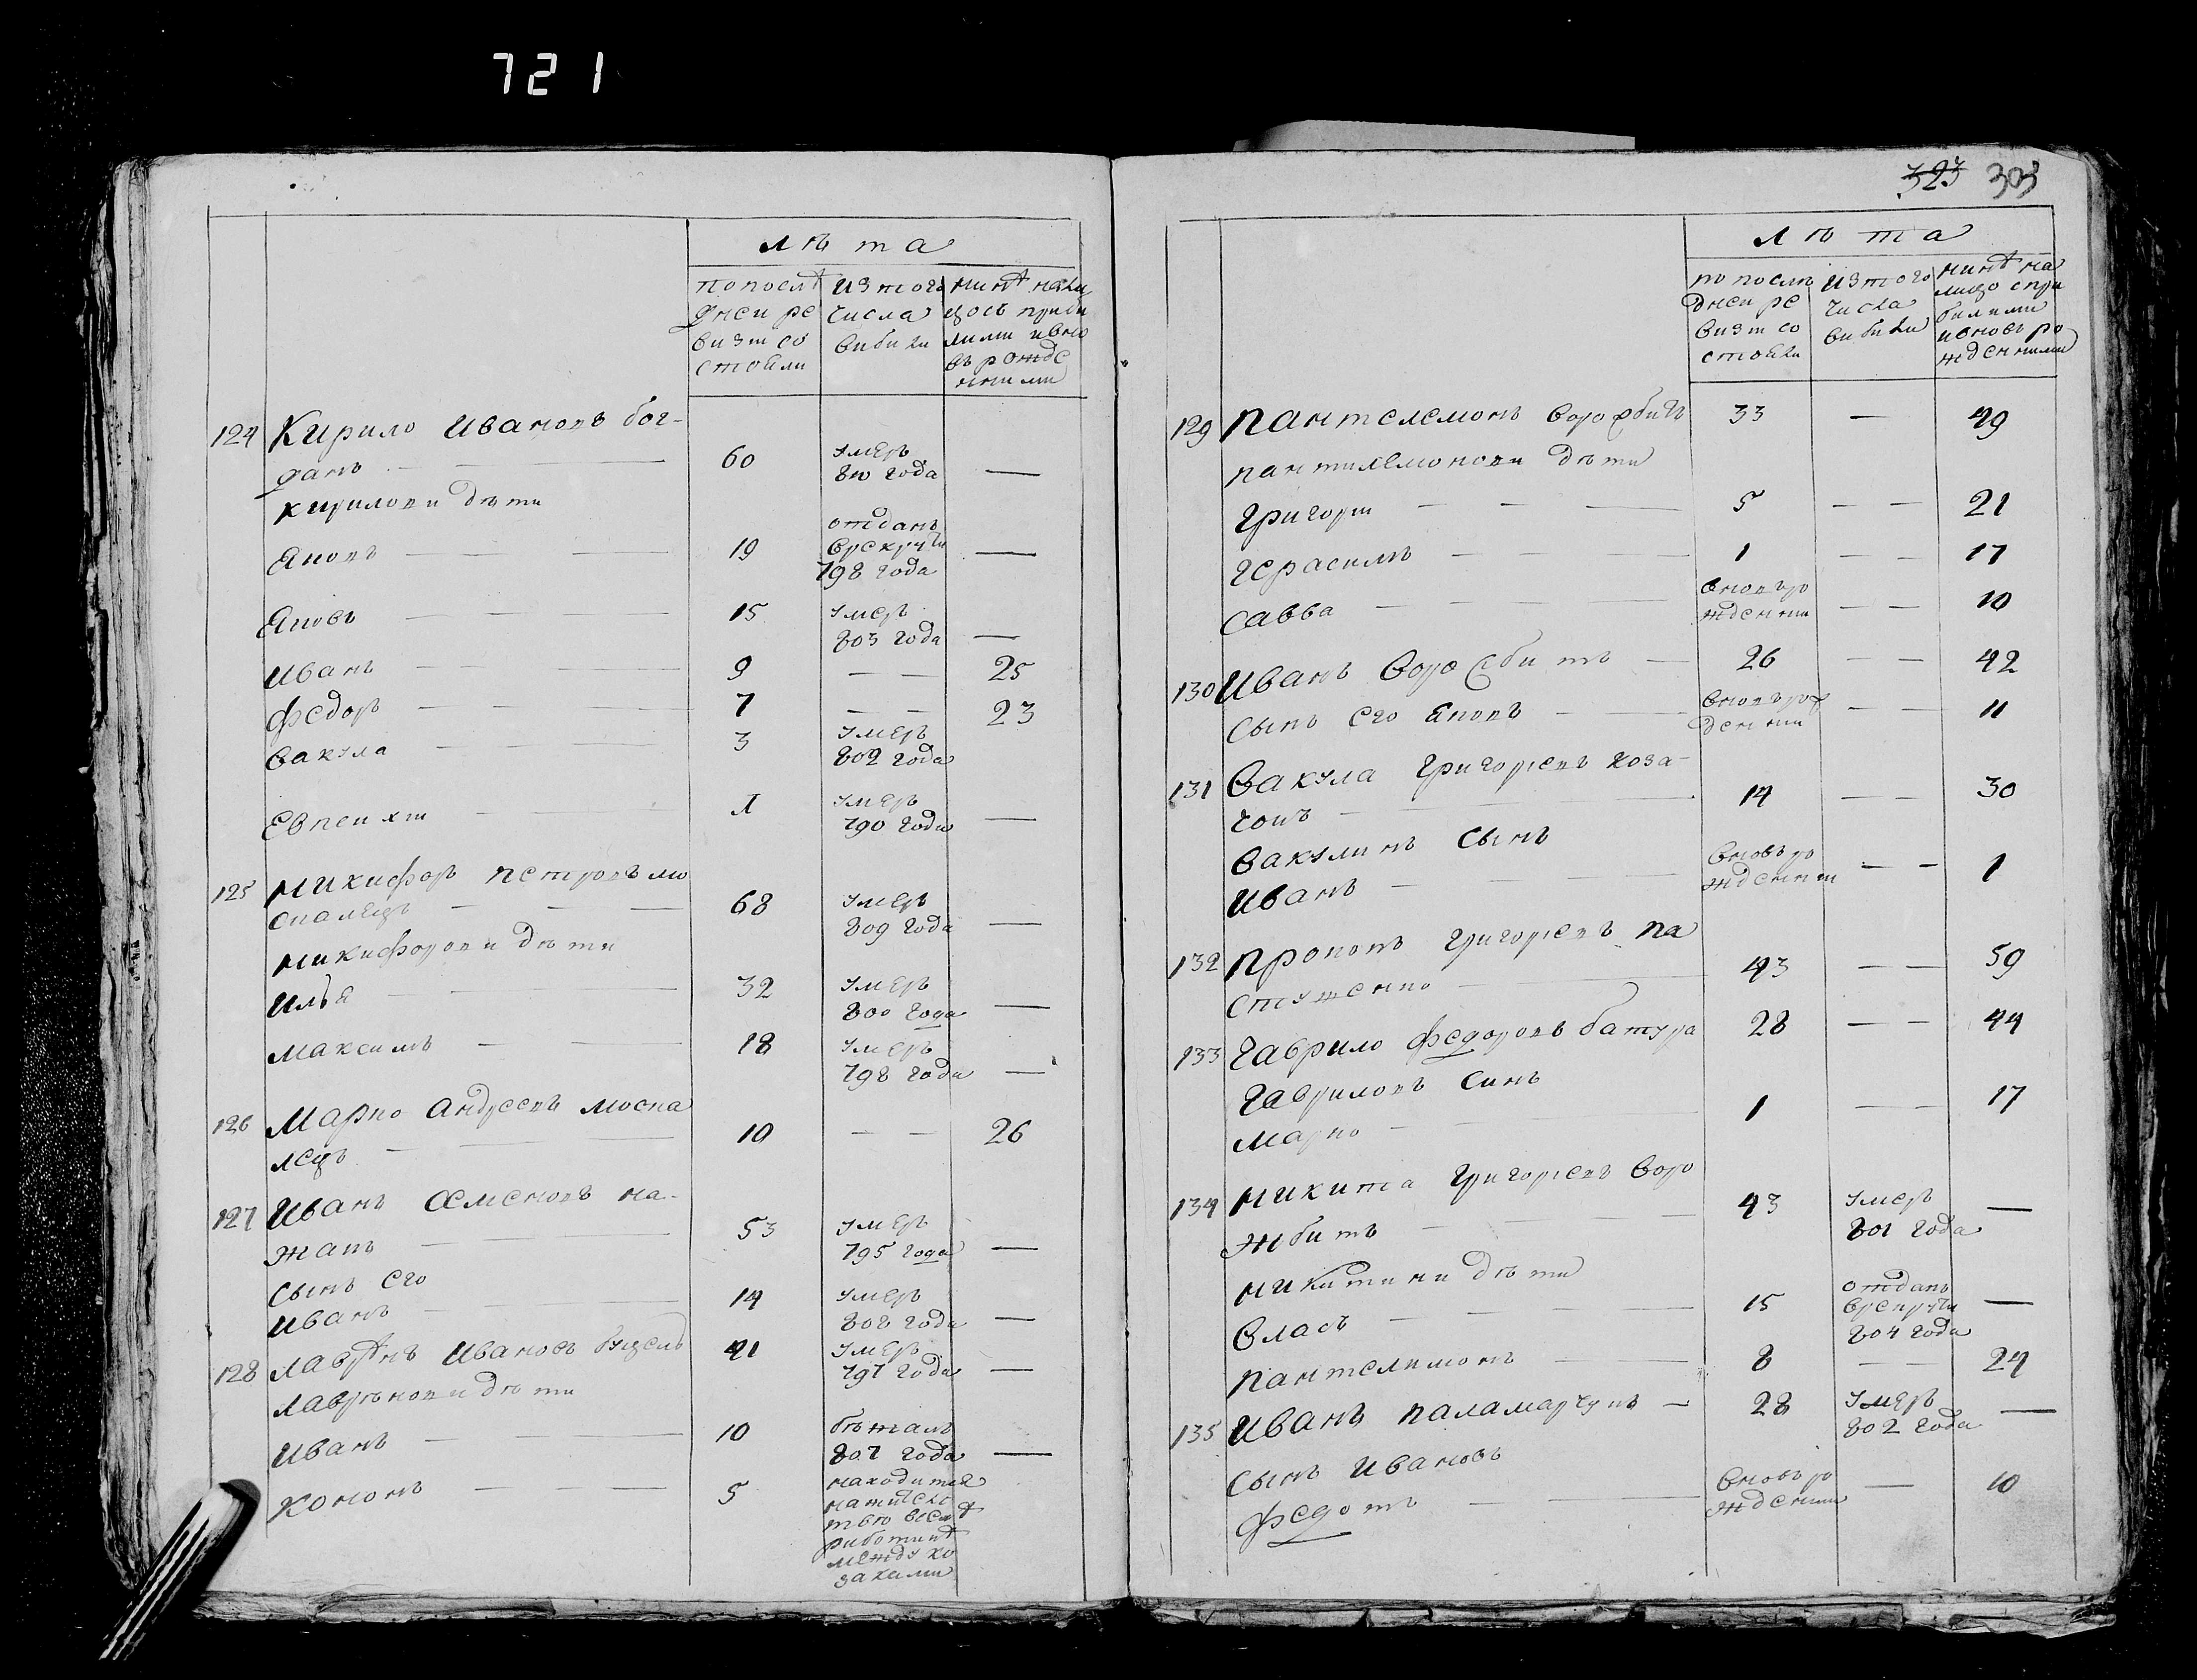 721
лѣта
попослѣ
дней ре
визіи со
стояли
изтого
числа
вибили
нинѣ нали
цось приби
лими ивно
въ рожде
нними
124 Кирило Ивановъ бог-
данъ — 60 умеръ
810 года —
Кириловы дѣти
Яковъ — 19 отданъ
врекруты
798 года —
Яковъ — 15 умеръ
803 года —
Иванъ — 9 — — 25
Федоръ — 7 — — 23
Вакула — 3 умеръ
802 года
Евпсихіи — 1 умеръ
790 года —
125 Никифоръ Петровъ мо
скалецъ — 68 умеръ
809 года —
Никифоровы дѣти
Илья — 32 умеръ
800 года —
Максимъ — 18 умеръ
798 года —
126 Марко Андреевъ моска
лецъ — 10 — — 26
127 Иванъ Семеновъ ка-
жанъ — 53 умеръ
795 года —
Сынъ его
Иванъ — 14 умеръ
808 года —
128 Лаврѣнъ Ивановъ Буцель 41 умеръ
797 года —
Лавреновы дѣти
Иванъ — 10 бѣжалъ
807 года —
Кононъ — 5 находится
нажителс
тве
работинѣ
между ко
заками
323 303
лѣта
по послѣ
дней ре
визіи со
стояли
изтого
числа
вибили
нинѣ на
лицо спри
билими
ивновь ро
жденними
129 Пантелемонъ Ворожбитъ 33 — 49
Пантилемоновы дѣти
Григорій — 5 — — 21
Герасимъ — 1 — — 17
Савва — вновь ро
жденній — — 10
130 Иванъ Ворожбитъ — 26 — — 42
Сынъ его Яковъ — вновь рож
денній — — 11
131 Вакула Григорьевъ коза-
чокъ — 14 — — 30
Вакулинъ Сынъ
Иванъ — вновь ро
жденній — — 1
132 Прокопъ Григорьевъ па
стушенко — 43 — — 59
133 Гаврило Федоровъ батура 28 — — 44
Гавриловъ Синъ
Марко — 1 — — 17
134 Никита Григорьевъ Воро
жбитъ — 43 умеръ
801 года —
Никитини дѣти
Власъ — 15 отданъ
врекруты
804 года —
Пантелимонъ — 8 — — 24
135 Иванъ Паламарчукъ — 28 умеръ
802 года —
Сынъ Ивановъ
Федотъ — вновь ро
жденній — 10